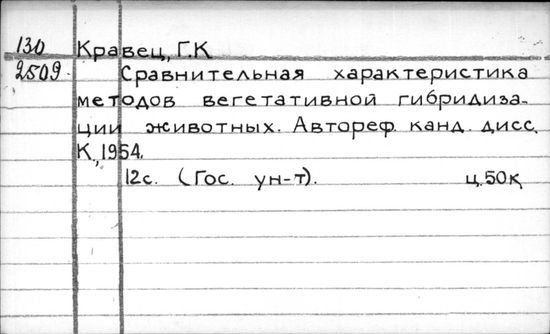 130 Кравец, Г.К
2509. Сравнительная характеристика
методов вегетативной гибридиза-
ции животных. Автореф. канд. дисс.
К., 1954.
12с. (Гос. ун-т). ц. 50к